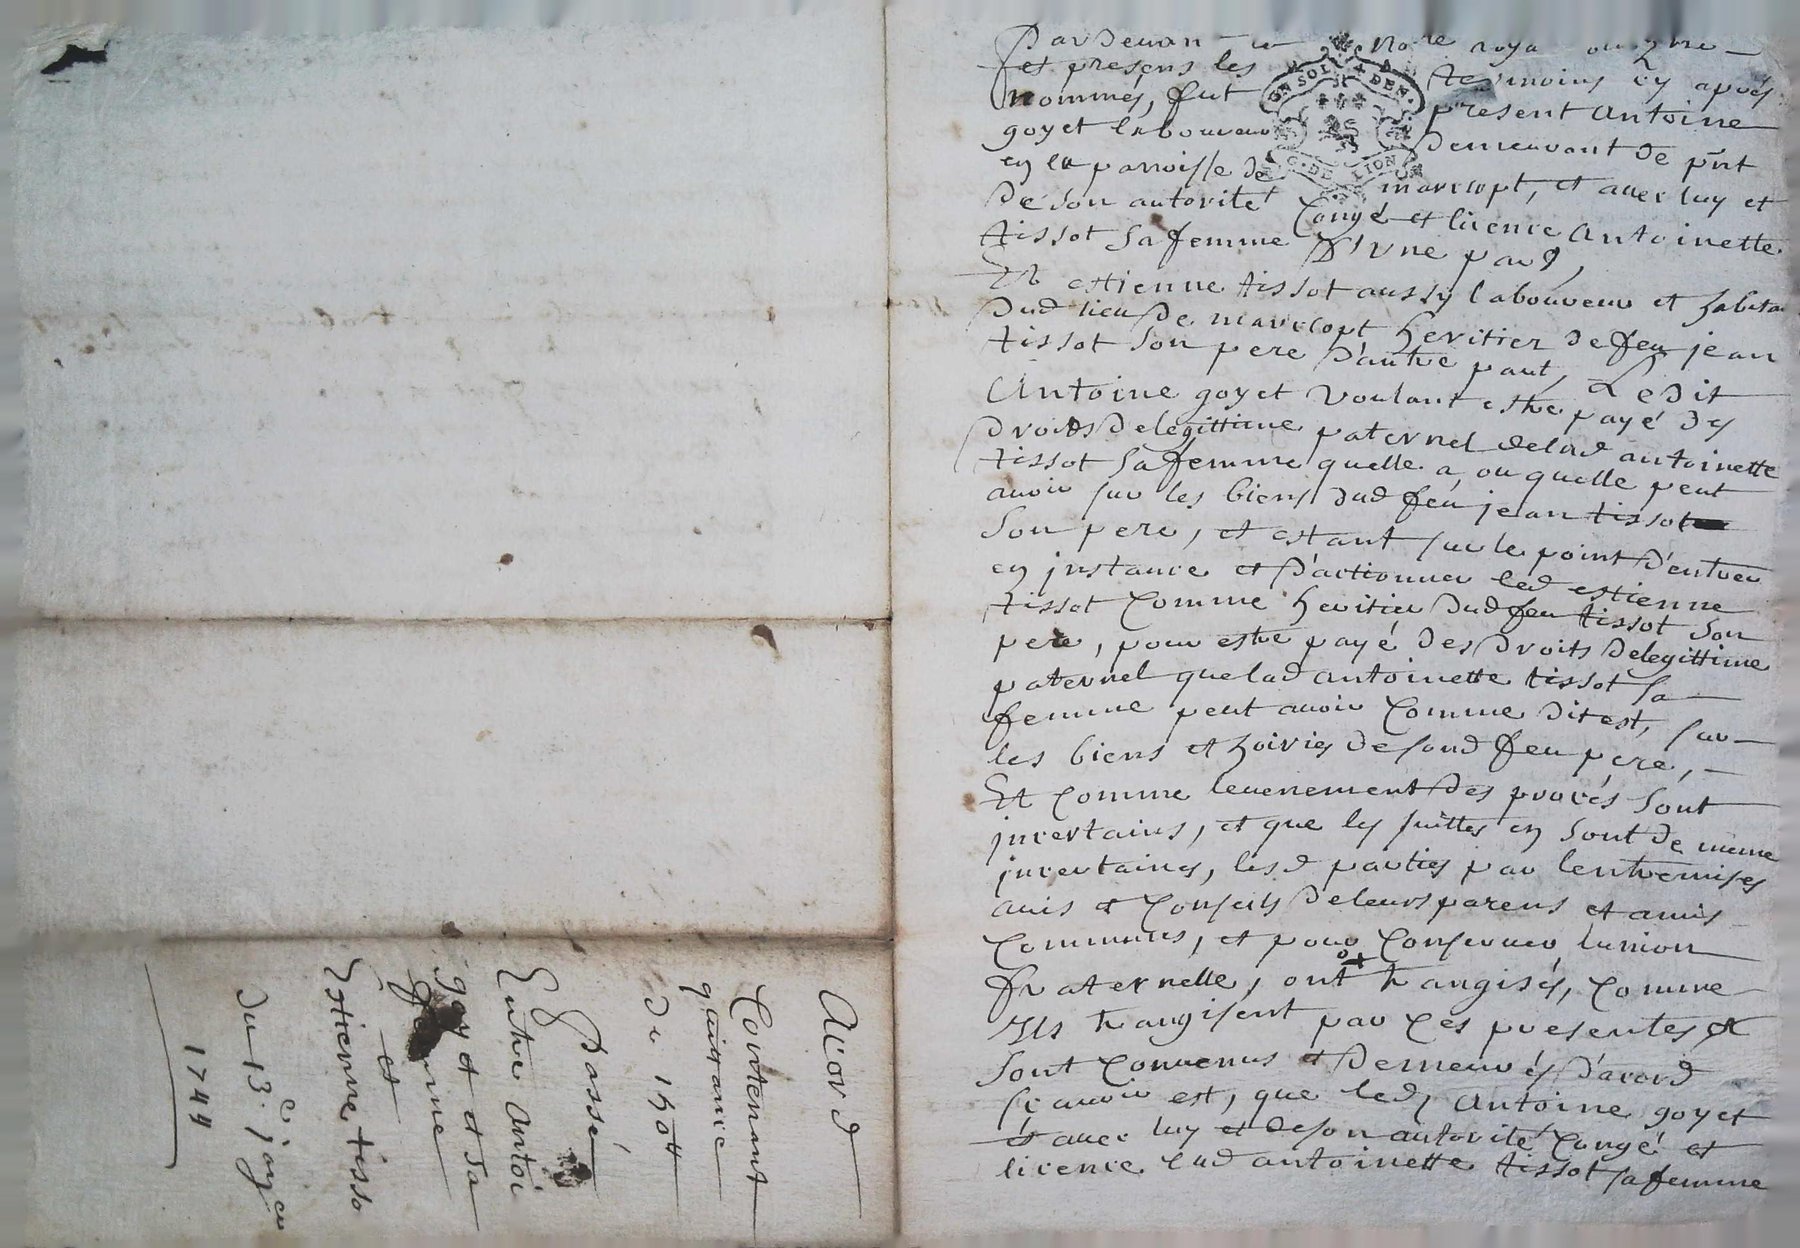 Acord
Contenant
quittance
de 150lt
Passé
Entre Antoi
goyet et sa
femme
et
Estienne tisso
du 13e janver
1744
Pardevan le No.re roya
et presens les tesmoins cy apres
nommés, fut present antoine
goyet laboureur demeurant de pñt
en la parroisse de marcopt, et avec luy et
de son autorité Congé et licence antoinette
tissot sa femme d'une part,
Et estienne tissot aussy laboureur et habita
dud lieu de marcopt heritier de feu jean
tissot son pere d'autre part, Ledit
Antoine goyet voulant estre payé des
droits de legittime paternel delad antoinette
tissot sa femme quelle a, ou quelle peut
avoir sur les biens dud feu jean tissot
son pere, et estant sur le point d'entrer
en jnstance et d'actionner led estienne
tissot Comme heritier dud feu tissot son
pere, pour estre payé des droits de legittime
paternel que lad antoinette tissot sa
femme peut avoir Comme dit est, sur
les biens et hoiries de sond feu pere,
Et Comme levenement des procés sont
jncertains, et que les suittes en sont de meme
jncertaines, lesd parties par lentremises
avis et Conseils de leurs parens et amis
Communs, et pour Conserver lunion
fraternelle, ont trangisés, Comme
Ils trangisent par Ces presentes et
sont Convenus et demeurés d'acord
sçavoir est, que led, antoine goyet
et avec luy et de son autorité Congé et
licence lad antoinette tissot sa femme
EN SOL 4 DEN.
G. DE LION